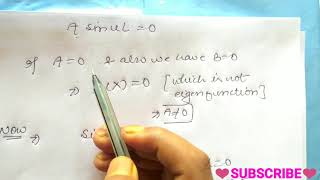 A sin μL = 0
If A=0 & also we have B=0
⇒ (X) = 0 [which is not
eigenfunction]
⇒ A≠0
NOW ⇒ Si
= 0
SUBSCRIBE